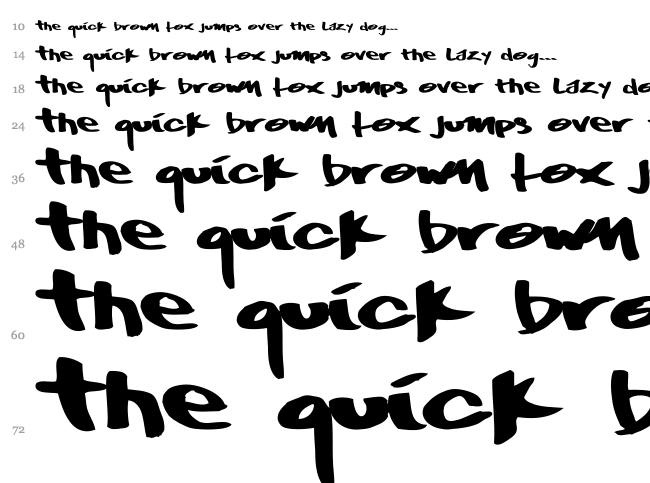 10 the quick brown fox jumps over the Lazy dog...
14 the quick brown fox jumps over the Lazy dog...
18 the quick brown fox jumps over the Lazy do
24 the quick brown fox jumps over
36 the quick brown fox j
48 the quick brown
60 the quick bro
72 the quick b